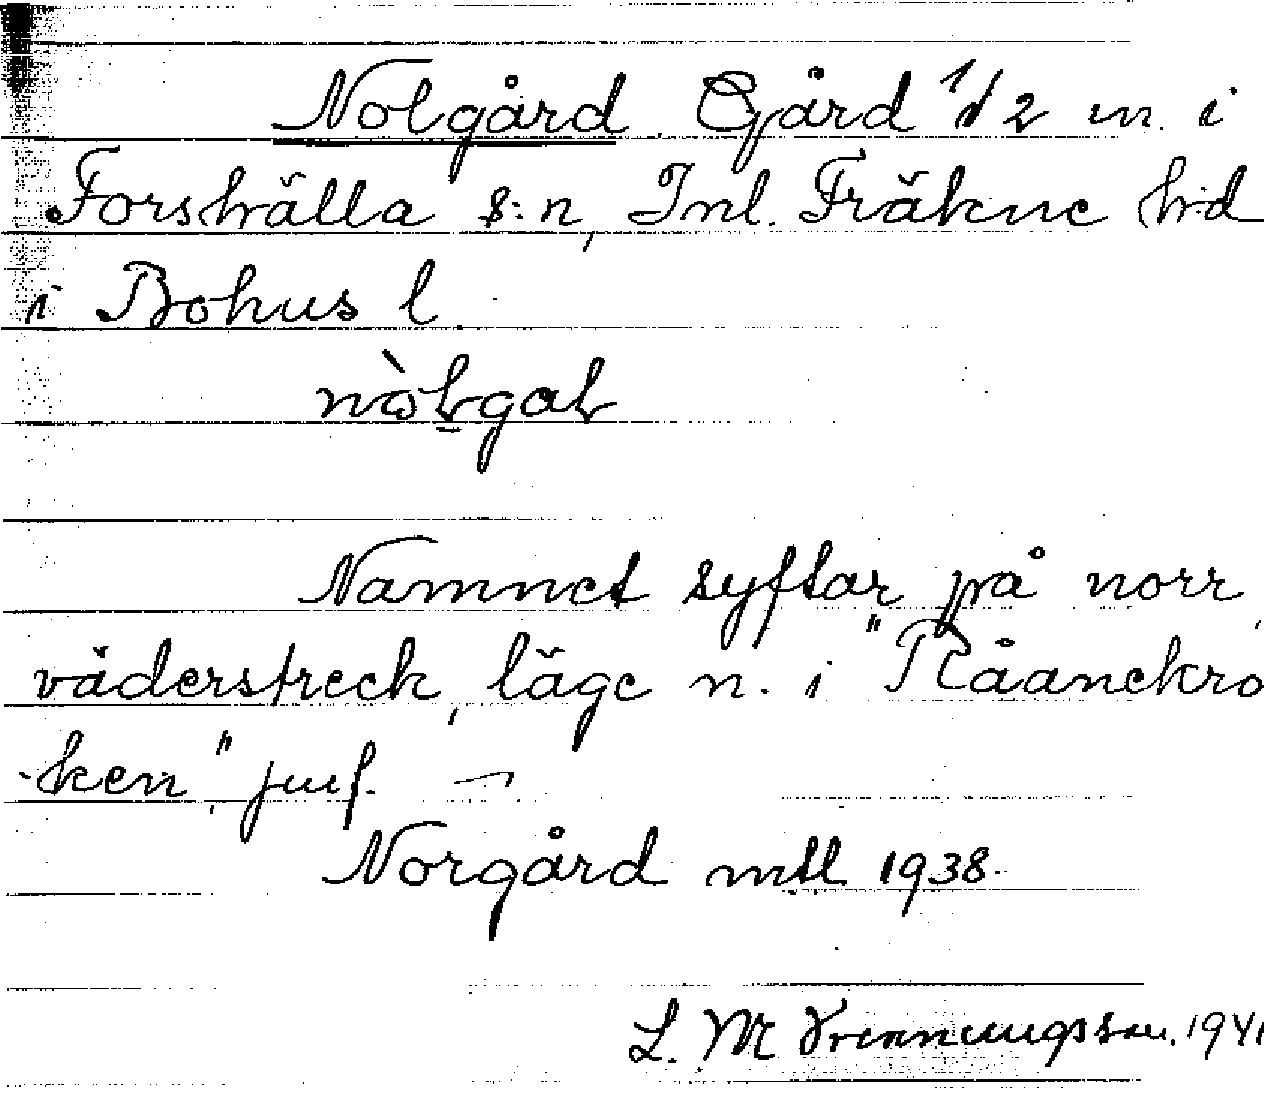 Nolgård Gård 1/2 m. i
Forshälla s:n, Inl. Fräkne h:d
i Bohus l.
Namnet syftar på norr,
väderstreck, läge n. i "Råanekro
-ken," jmf.
Norgård mtl 1938.
L. M. 1941